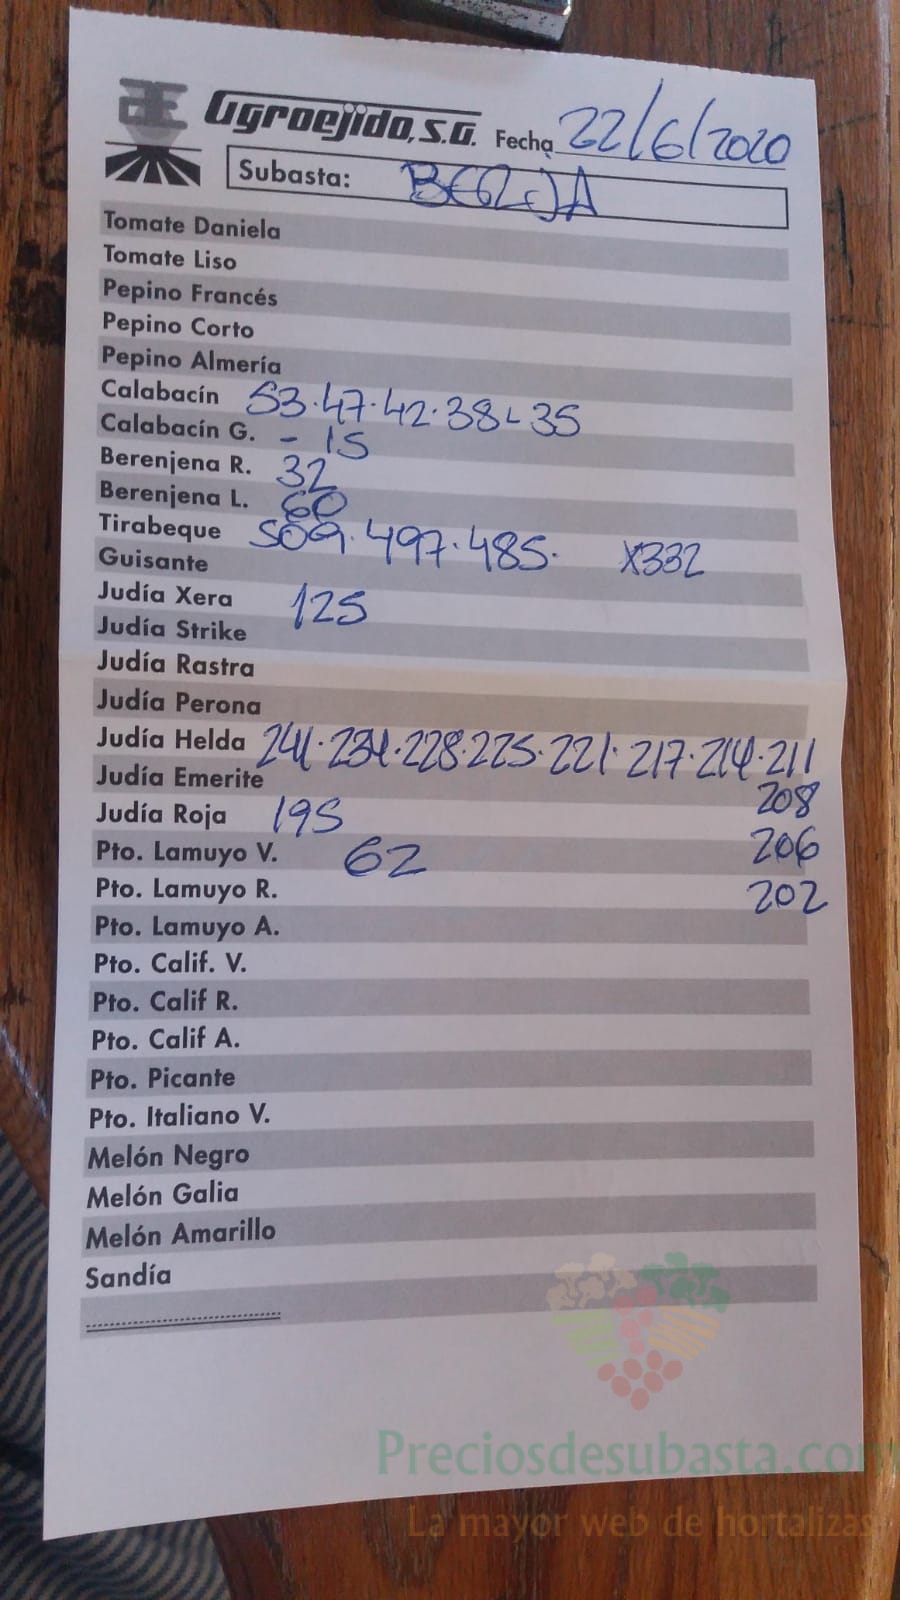 Agroejido, S.A. Fecha 22/6/2020
Subasta: BERJA
Tomate Daniela
Tomate Liso
Pepino Francés
Pepino Corto
Pepino Almería
Calabacín 53.47.42.38-35
Calabacín G. - 15
Berenjena R. 32
Berenjena L. 60
Tirabeque 509.497.485. X332
Guisante
Judía Xera 125
Judía Strike
Judía Rastra
Judía Perona
Judía Helda 241.234.228.225.221.217.214.211
Judía Emerite 208
Judía Roja 195 206
Pto. Lamuyo V. 62 202
Pto. Lamuyo R.
Pto. Lamuyo A.
Pto. Calif. V.
Pto. Calif R.
Pto. Calif A.
Pto. Picante
Pto. Italiano V.
Melón Negro
Melón Galia
Melón Amarillo
Sandía
Preciosdesubasta.com
La mayor web de hortalizas